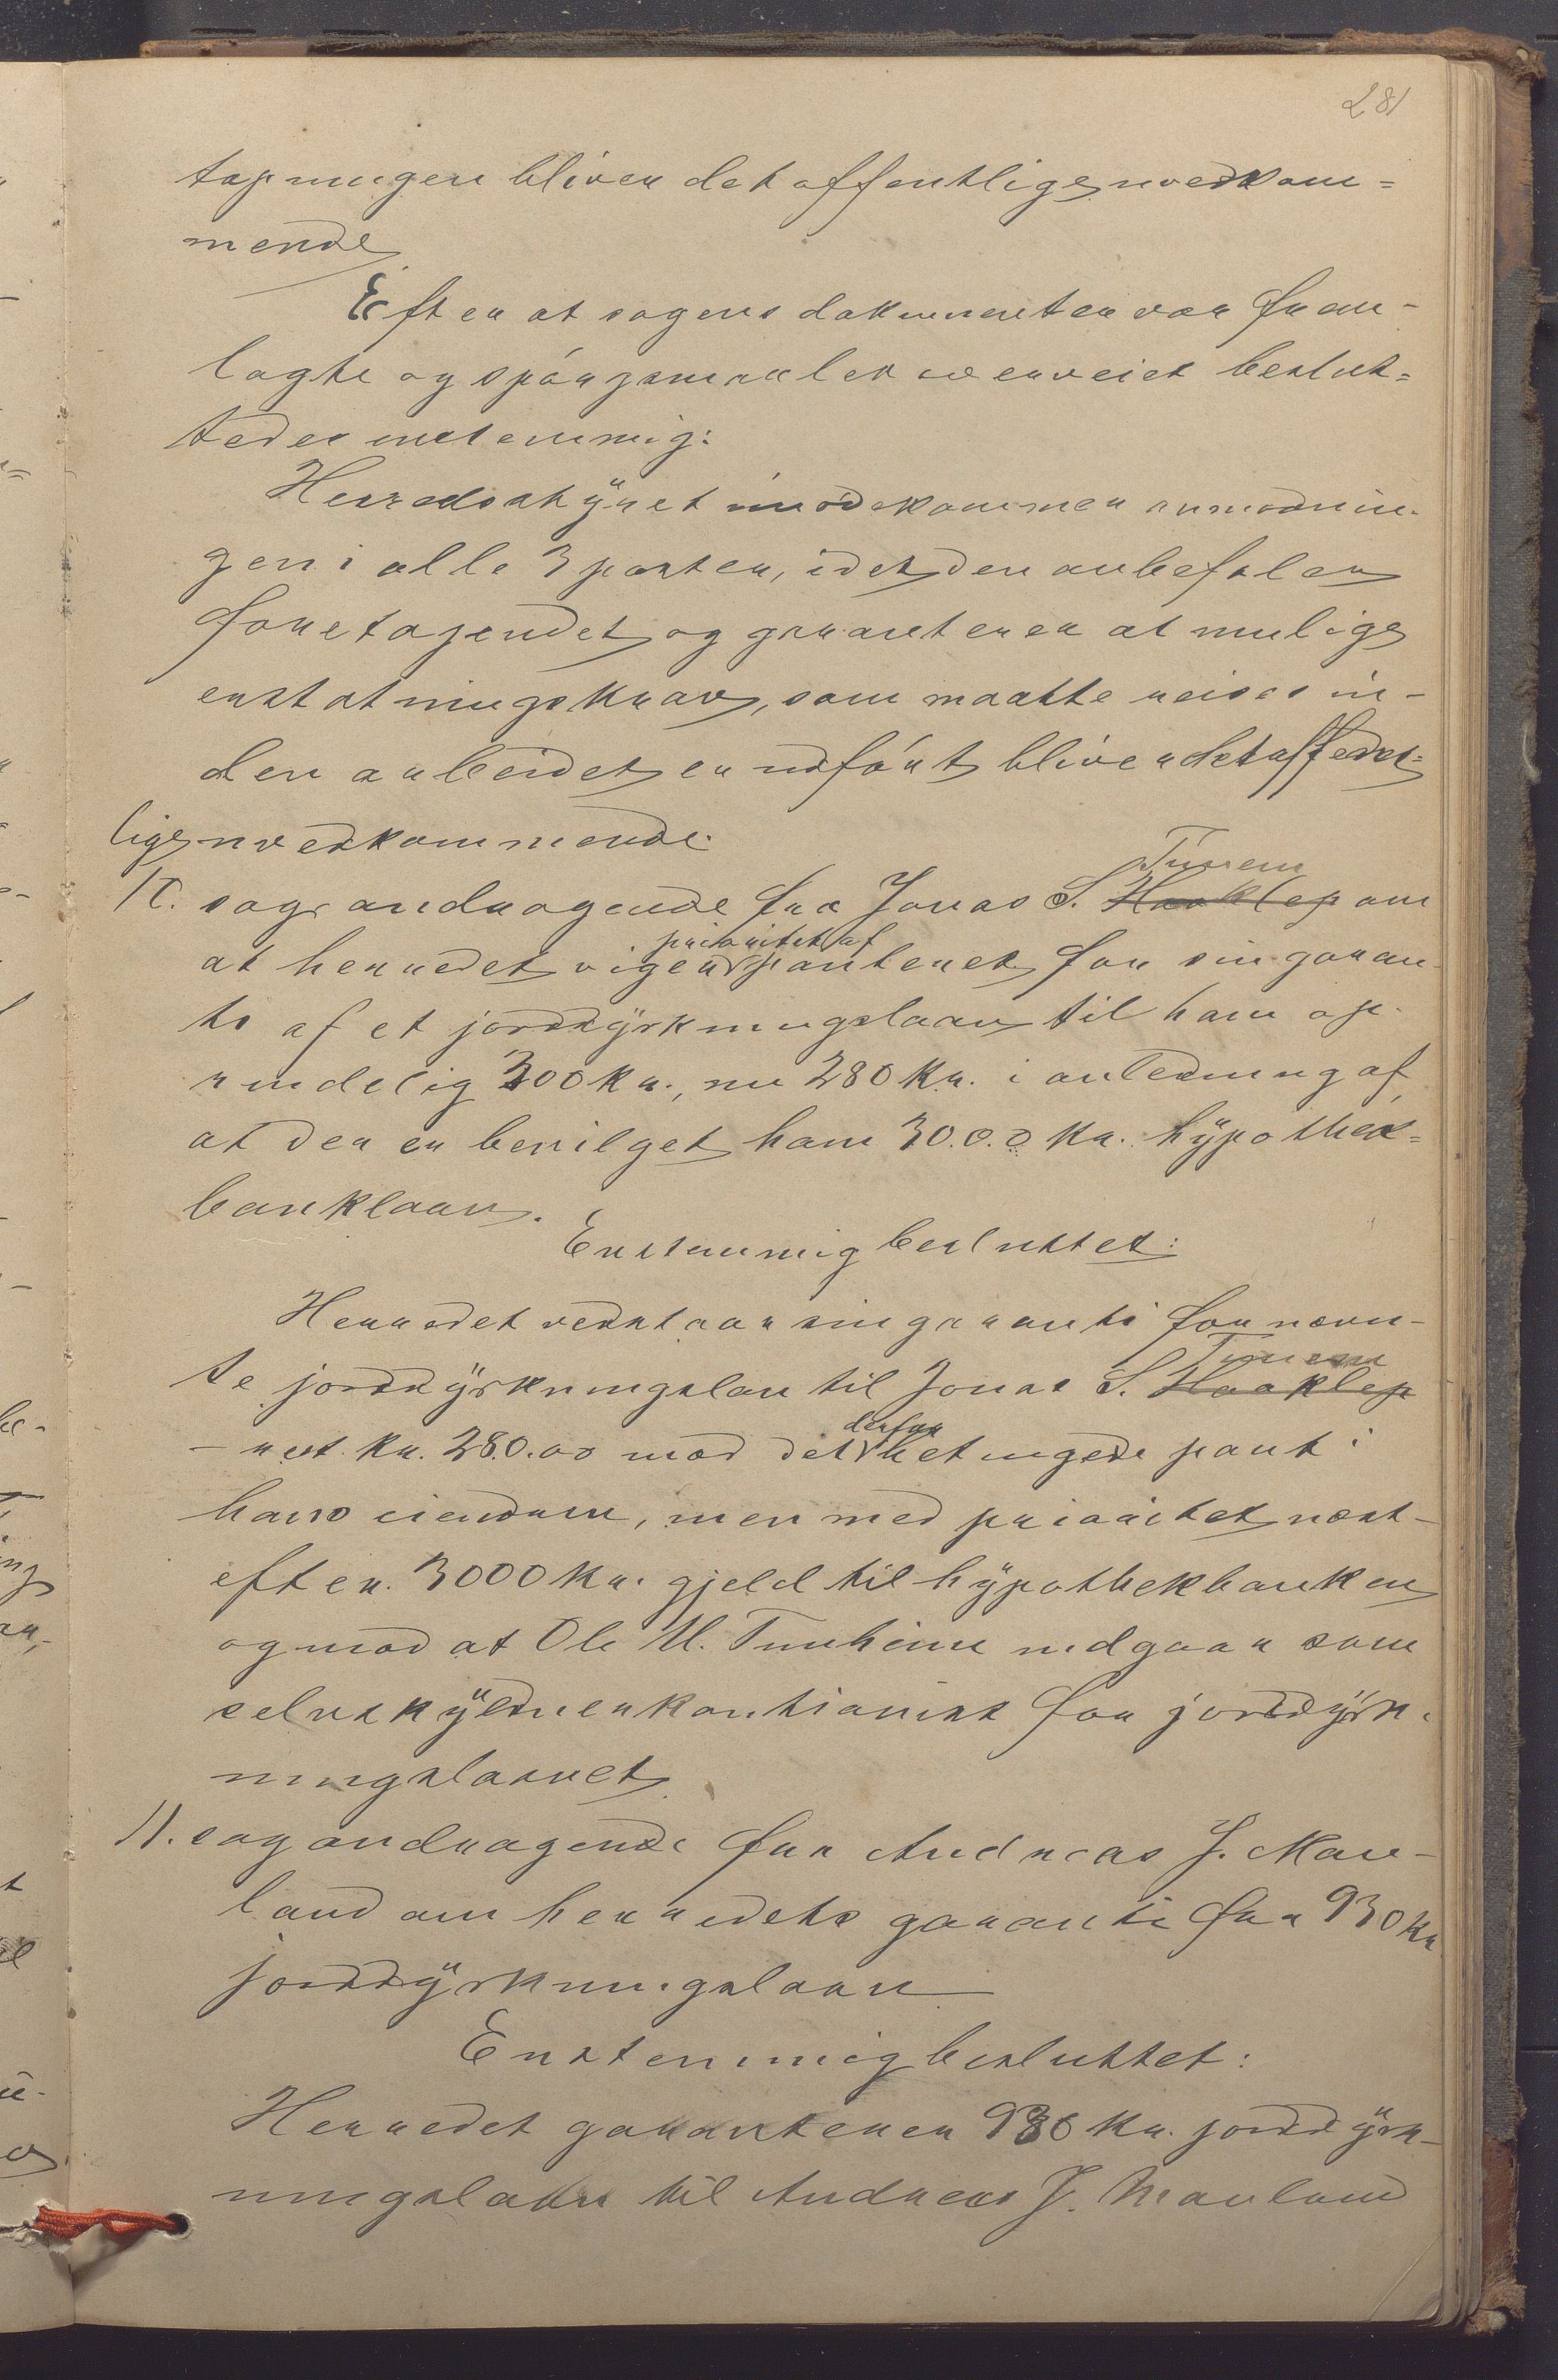 281
tapningen bliver det offentlige uvedkom=
mende
Efter at sagens dokumenter var frem-
lagte og spörgsmaalet overveiet beslut=
tedes enstemmig:
Herredsstyret imödekommer anmodnin-
gen i alle 3 poster, idet den anbefaler
foretagendet og garanterer at mulige
erstatningskrav, som maatte reises in-
den arbeidet er udfört bliver det offent=
lige uvedkommende.
10. sag: andragende fra Jonas S. Haaklep om
Tunem
at herredet viger panteret for sin garan
prioritet af
ti af et jorddyrkningslaan til ham op-
rindelig 300 kr., nu 280 kr. i anledning af
at der er bevilget ham 3000 kr. hypothek=
banklaan.
Enstemmig besluttet:
Herredet vedstaar sin garanti for nævn-
te jorddyrkningslan til Jonas S. Haaklep
Tunem
– rest kr. 280.00 mod det betingede pant i
derfor
hans eiendom, men med prioritet næst-
efter 3000 kr. gjeld til hypothekbanken
og mod at Ole M. Tunheim indgaar som
selvskyldnerkautionist for jorddyrk-
ningslaanet.
11. sag andragende fra Andreas J. Mau-
land om herredets garanti for 930 kr
jorddyrkningslaan
Enstemmig besluttet:
Herredet garanterer 930 kr. jorddyrk-
ningslaan til Andreas J. Mauland